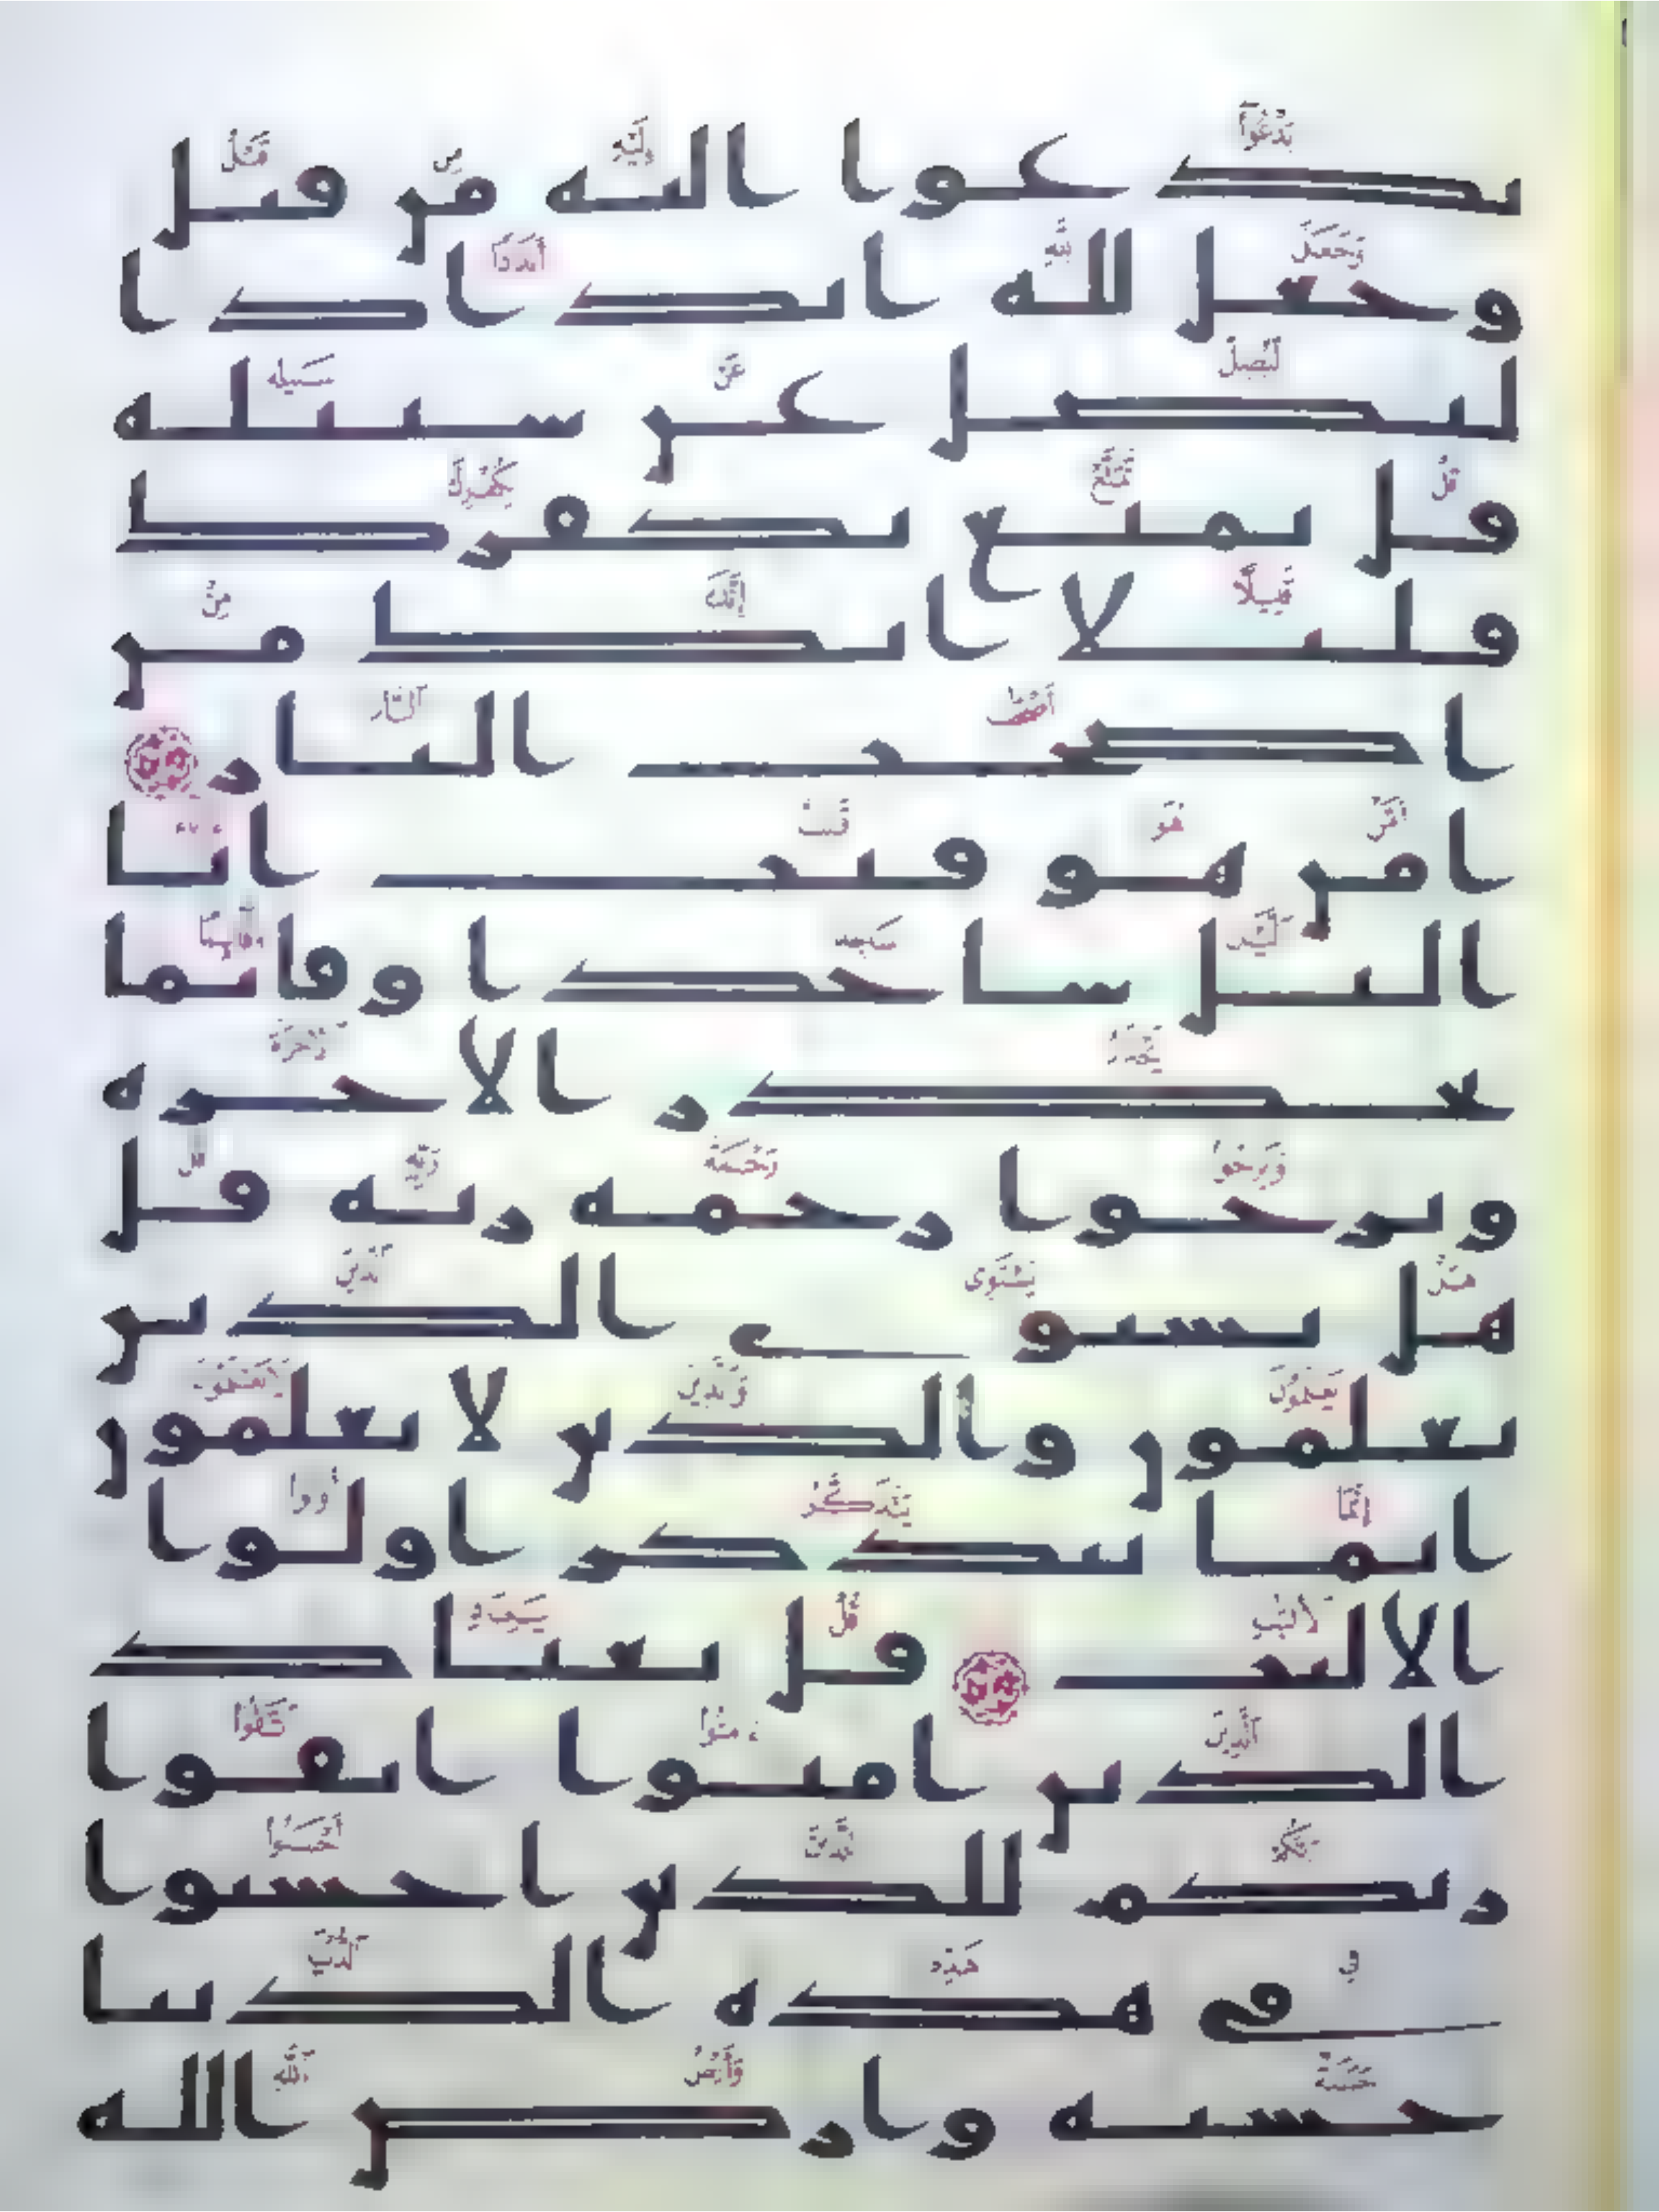 يدعوا اليه من قبل
وجعل لله اندادا
ليضل عن سبيله
قل تمتع بكفرك
قليلا انك من
اصحب النار
امن هو قنت انا
اليل ساجدا وقائما
يحذر الاخرة
ويرجوا رحمة ربه قل
هل يستوي الذين
يعلمون والذين لا يعلمون
انما يتذكر اولوا
الالبب قل يعباد
الذين امنوا اتقوا
ربكم للذين احسنوا
في هذه الدنيا
حسنة وارض الله